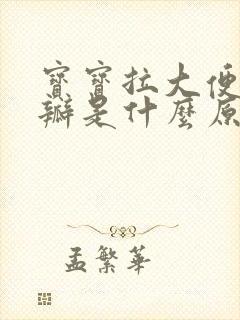 寶寶拉大便
瓣是什麼原
孟繁華